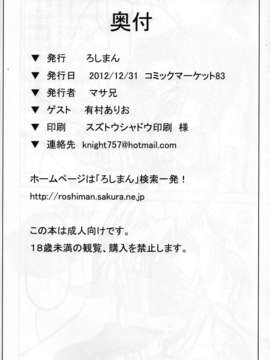 奥付
▼ 発行 ろしまん
▼ 発行日 2012/12/31 コミックマーケット83
▼ 発行者 マサ兄
▼ ゲスト 有村ありお
▼ 印刷 スズトウシャドウ印刷 様
▼ 連絡先 knight757@hotmail.com
ホームページは「ろしまん」検索一発！
http://roshiman.sakura.ne.jp
この本は成人向けです。
１８歳未満の観覧、購入を禁止します。